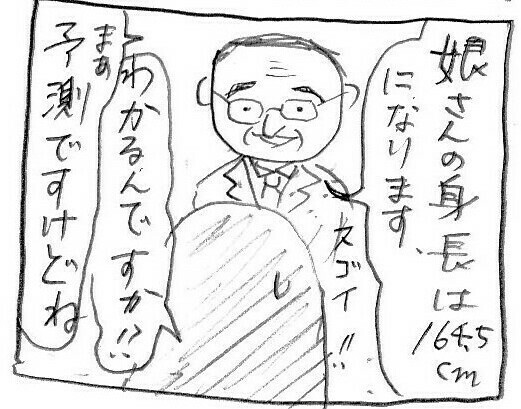 娘さんの身長は
164.5
cm
になります。
スゴイ!!
わかるんですか!?
まぁ
予測ですけどね